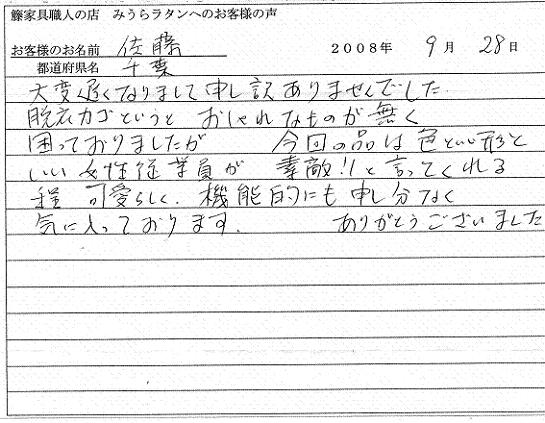 籐家具職人の店 みうらラタンへのお客様の声
お客様のお名前 佐藤 2008年 9月 28日
都道府県名 千葉
大変遅くなりまして申し訳ありませんでした.
脱衣カゴというと おしゃれなものが無く
困っておりましたが 今回の品は色といい形と
いい 女性従業員が 素敵!!と言ってくれる
程 可愛らしく、機能的にも申し分なく
気に入っております. ありがとうございました